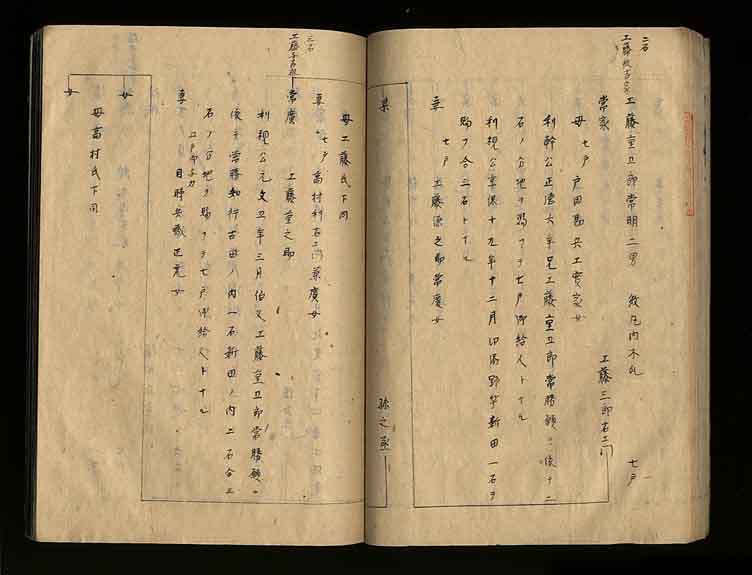 二石
工藤
工藤重五郎常明二男
七戸
工藤三郎右エ門
常家
母 七戸 戸田
利幹公正徳六年兄工藤重五郎常勝願ニ依テ二
石ノ分地ヲ賜フテ七戸御給人トナル
利視公享保十九年十二月 新田一石ヲ
賜フ合三石トナル
妻 七戸 工藤源之助常廣女
某
孫之丞
母工藤氏下同
妻 七戸 高村利右エ門兼廣女
三石
工藤
常廣 工藤重之助
利視公元文五年三月伯父工藤重五郎常勝願ニ
依テ常勝知行古田ノ内一石新田ノ内二石合三
石ノ分地ヲ賜フテ七戸御給人トナル
妻
女
女
母高村氏下同